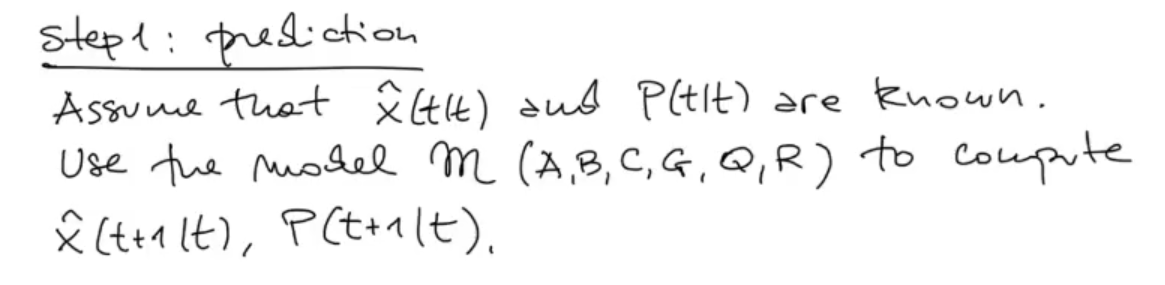 Step 1: prediction
Assume that x̂(t|t) and P(t|t) are known.
Use the model M (A,B,C,G,Q,R) to compute
x̂(t+1|t), P(t+1|t).